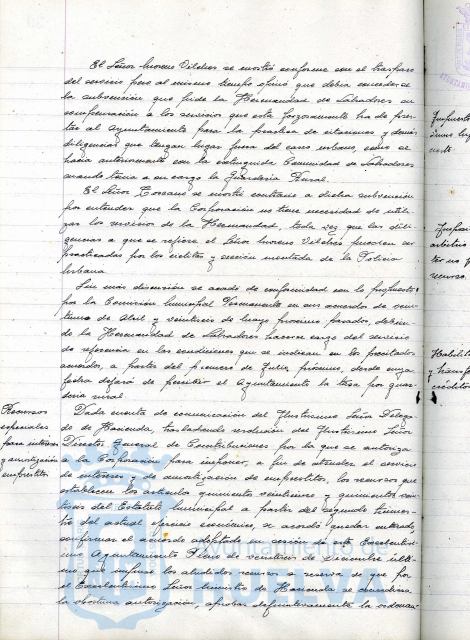 El Señor Moreno Vilches se mostró conforme con el traspaso
del servicio pero al mismo tiempo opinó que debía concederse
la subvención que pide la Hermandad de Labradores en
compensación a los servicios que esta forzosamente ha de pres-
tar al Ayuntamiento para la práctica de citaciones y demás
diligencias que tengan lugar fuera del casco urbano, como se
hacía anteriormente con la extinguida Comunidad de Labradores
cuando tenía a su cargo la Guardería Rural.
El Señor se mostró contrario a dicha subvención
por entender que la Corporación no tiene necesidad de utili-
zar los servicios de la Hermandad, toda vez que las dili-
gencias a que se refiere el Señor Moreno Vilches pueden ser
practicadas por los ciclistas y sección montada de la Policía
Urbana.
Sin más discusión se acordó de conformidad con lo propuesto
por la Comisión Municipal Permanente en sus acuerdos de
de Abril y veintiseis de Mayo próximo pasados, debien-
do la Hermandad de Labradores hacerse cargo del servicio
de referencia en las condiciones que se indican en los precitados
acuerdos, a partir del primero de Julio próximo, desde cuya
fecha dejará de percibir el Ayuntamiento la tasa por guar-
dería rural.
Recursos
especiales
para intereses
y amortización
empréstitos
Dada cuenta de comunicación del Ilustrísimo Señor Delega-
do de Hacienda, trasladando resolución del Ilustrísimo Señor
Director General de Contribuciones por la que se autoriza
a la Corporación para imponer, a fin de atender el servicio
de intereses y de amortización de empréstitos, los recursos que
establecen los artículos quinientos veintinueve y quinientos
del Estatuto Municipal a partir del segundo trimes-
tre del actual ejercicio económico, se acordó quedar enterado,
confirmar el acuerdo adoptado en sesión de este Excelentísi-
mo Ayuntamiento Pleno de veintiseis de Diciembre últi-
mo que impuso los aludidos recursos a reserva de que por
el Excelentísimo Señor Ministro de Hacienda se concediera
la oportuna autorización, aprobar definitivamente la ordenan-